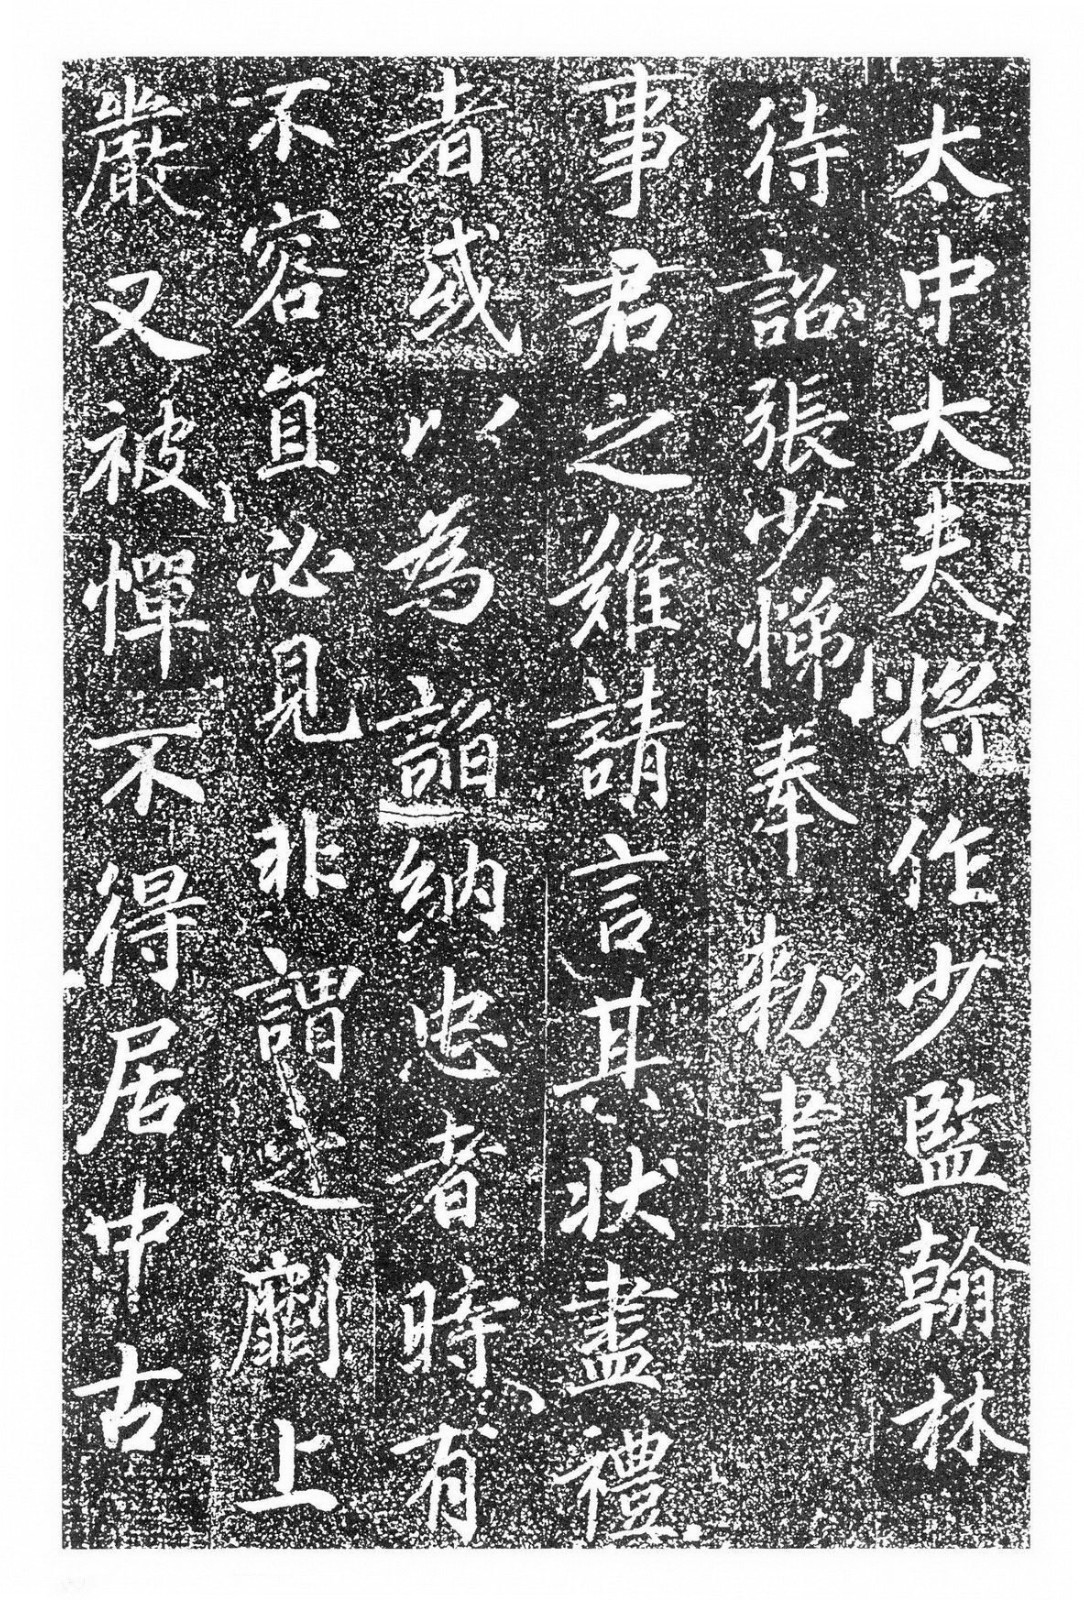 太中大夫將作少監翰林
待詔張少悌奉勑書
事君之難請言其狀盡禮
者或以為謟納忠者時有
不容直必見非謂之劘上
嚴又被憚不得居中古